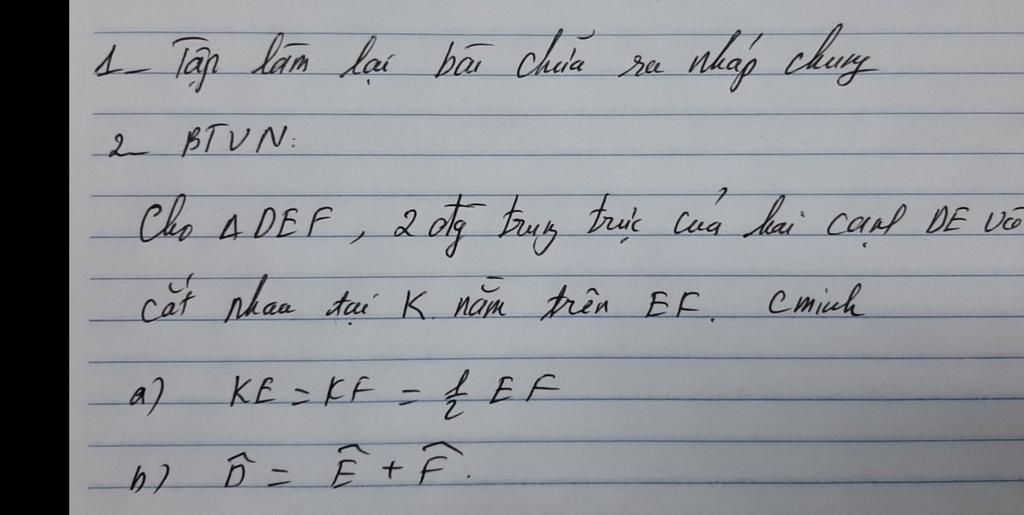 1_ Tập làm lại bài chữa ra nháp chung
2_ BTVN:
Cho Δ DEF, 2 đg trung trực của hai cạnh DE và
cắt nhau tại K nằm trên EF. Cminh
a) KE = KF = 1/2 EF
b) D̂ = Ê + F̂.